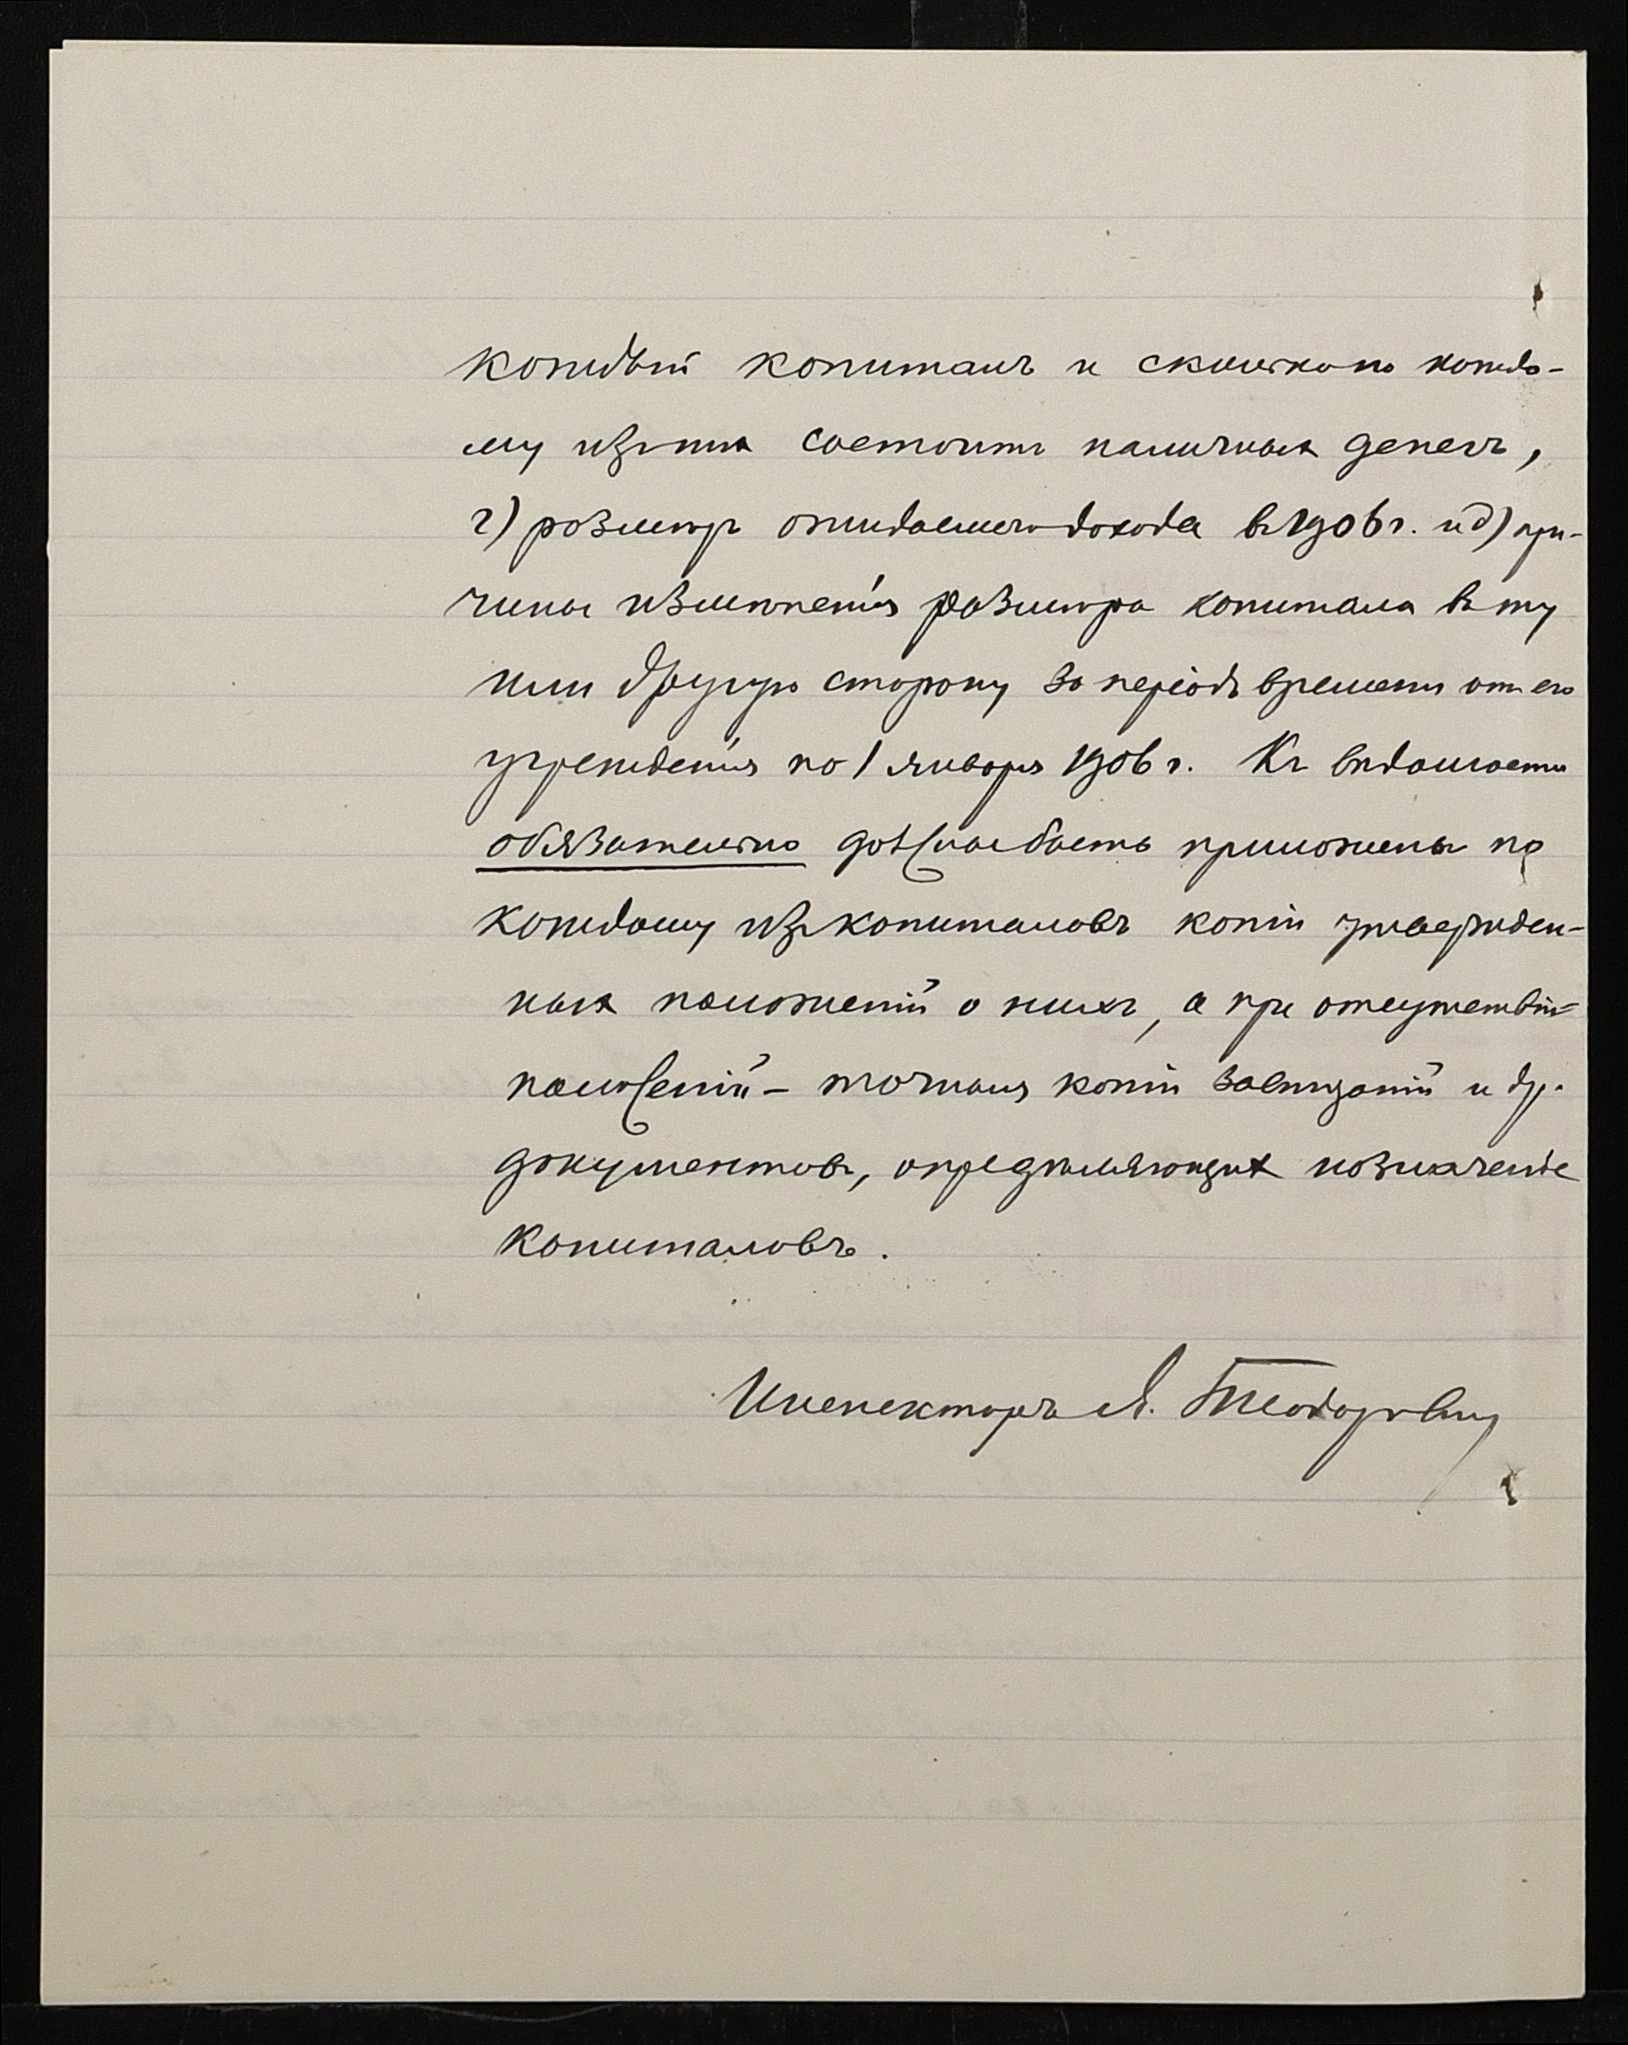 каждый капиталъ и сколько по каждо-
му изъ нихъ состоитъ наличныхъ денегъ,
г) размѣръ ожидаемаго дохода въ 1906 г. и д) при-
чины измѣненія размѣра капитала въ ту
или другую сторону за періодъ времени отъ его
учрежденія по 1 января 1906 г. Къ вѣдомости
обязательно должны быть приложены по
каждому изъ капиталовъ копіи утвержден-
ныхъ положеній о нихъ, а при отсутствіи
положеній – точныя копіи завѣщаній и др.
документовъ, опредѣляющихъ назначеніе
капиталовъ.
Инспекторъ А. Теодоровичъ